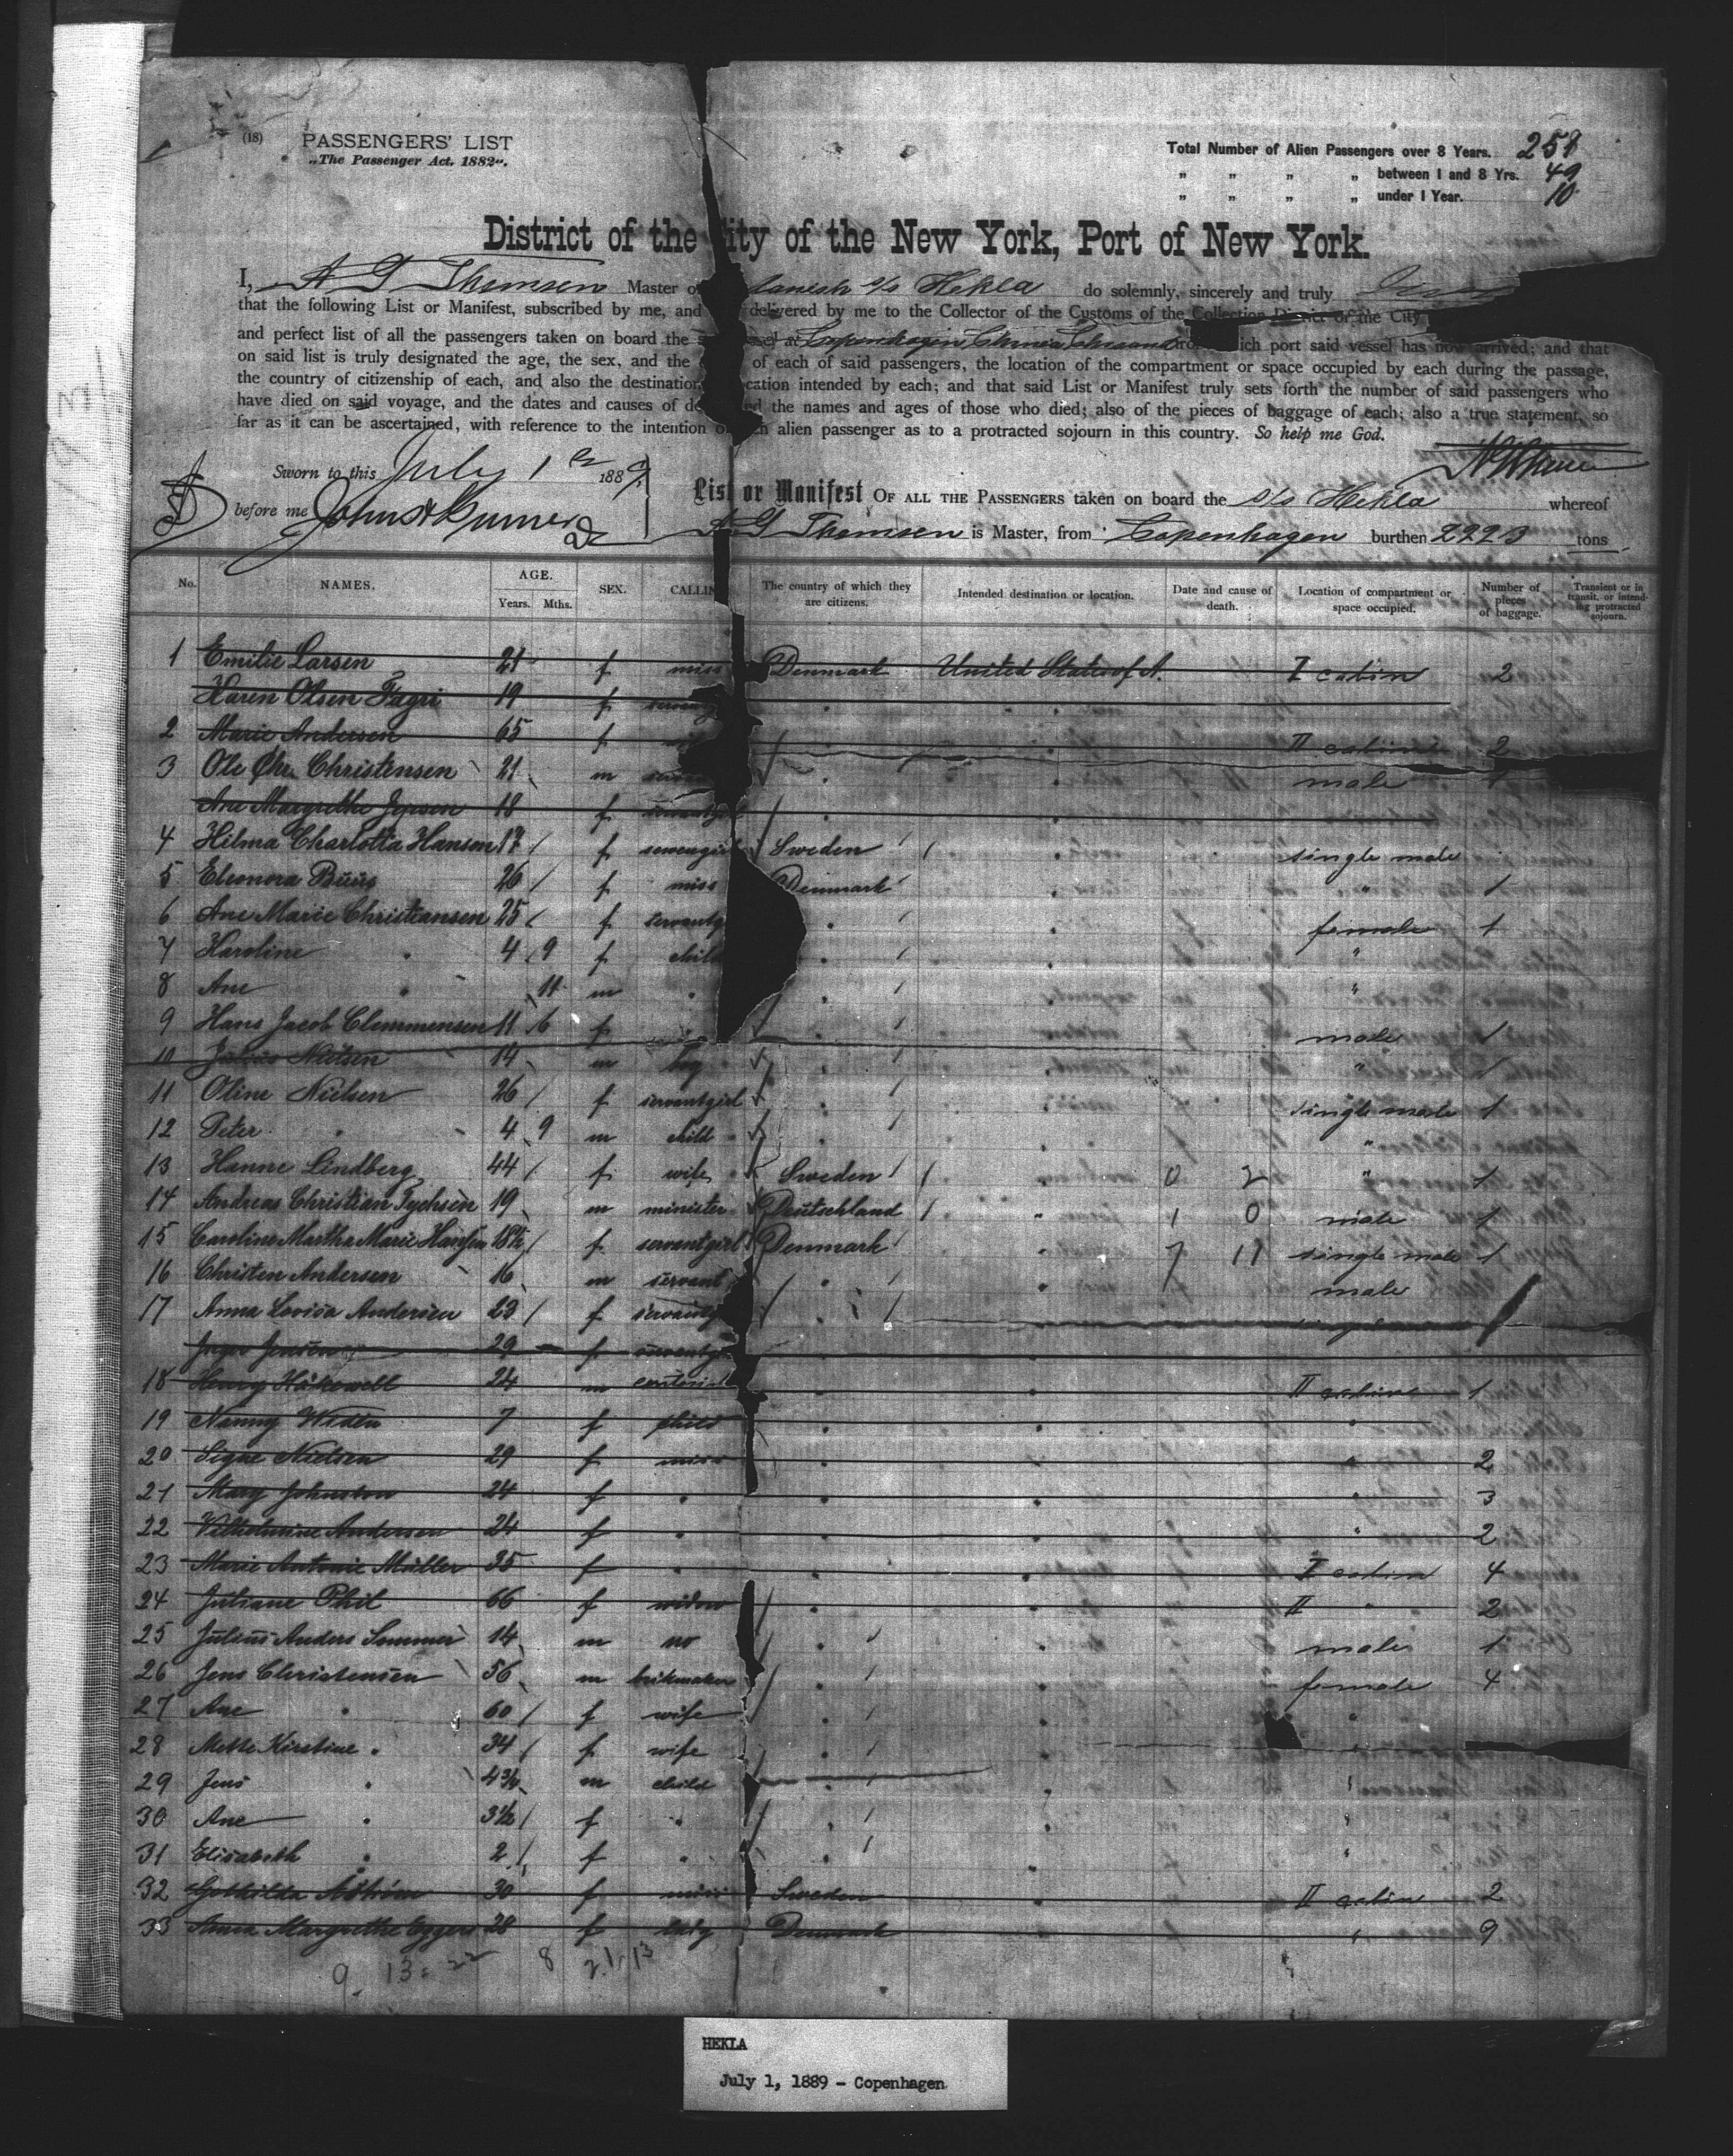 (18) PASSENGERS' LIST
„The Passenger Act, 1882".
Total Number of Alien Passengers over 8 Years. 258
„ „ „ „ between 1 and 8 Yrs. 49
„ „ „ „ under 1 Year. 10
District of the City of the New York, Port of New York.
I, A G Thomsen Master o Danish s/s Hekla do solemnly, sincerely and truly
that the following List or Manifest, subscribed by me, and delivered by me to the Collector of the Customs of the Collection District of the City
and perfect list of all the passengers taken on board the at Copenhagen Christiania Christiansand ich port said vessel has now arrived; and that
on said list is truly designated the age, the sex, and the of each of said passengers, the location of the compartment or space occupied by each during the passage,
the country of citizenship of each, and also the destination cation intended by each; and that said List or Manifest truly sets forth the number of said passengers who
have died on said voyage, and the dates and causes of de d the names and ages of those who died; also of the pieces of baggage of each; also a true statement, so
far as it can be ascertained, with reference to the intention o h alien passenger as to a protracted sojourn in this country. So help me God.
Sworn to this July 1 1889
before me
List or Manifest OF ALL THE PASSENGERS taken on board the s/s Hekla whereof
A G Thomsen is Master, from Copenhagen burthen 2223 tons
No. NAMES. AGE. Years. Mths. SEX. CALLIN The country of which they are citizens. Intended destination or location. Date and cause of death. Location of compartment or space occupied. Number of pieces of baggage. Transient or in transit, or intending protracted sojourn.
1 Emilie Larsen 21 f miss Denmark United States of A. I cabin 2
Karen Olsen Fagri 19 f
2 Marie Andersen 65 f II cabin 2
3 Ole Chr. Christensen 21 m male 1
Ane Margrethe Jepsen 18 f
4 Hilma Charlotta Hanson 17 f Sweden single male
5 Eleonora Buus 26 f miss Denmark " 1
6 Ane Marie Christiansen 25 f servantg female 1
7 Karoline " 4 9 f child "
8 Ane " 11 m " "
9 Hans Jacob Clemmensen 11 6 f male 1
10 Julius Nielsen 14 m boy " 1
11 Oline Nielsen 26 f servantgirl single male 1
12 Peter " 4 9 m child "
13 Hanne Lindberg 44 f wife Sweden 0 2 " 1
14 Andreas Christian Tychsen 19 m minister Deutschland " 1 0 male 1
15 Caroline Martha Marie Hansen 18½ f servantgirl Denmark 7 11 single male 1
16 Christen Andersen 16 m servant male
17 Anna Lovisa Andersen 23 f
Inger Jensen 29 f
18 Henry 24 m II cabin 1
19 Nanny Widén 7 f child "
20 Signe Nielsen 29 f miss " 2
21 Mary Johnston 24 f " " 3
22 Vilhelmine Andersen 24 f " " 2
23 Marie Antonie Müller 35 f " I cabin 4
24 Juliane Phil 66 f widow II " 2
25 Julius Anders Sommer 14 m no male 1
26 Jens Christensen 56 m brikmaker female 4
27 Ane " 60 f wife "
28 Mette Kirstine " 34 f wife "
29 Jens " 4¾ m child "
30 Ane " 3½ f " "
31 Elisabeth " 2 f " "
32 Gothilda Aström 30 f miss Sweden II cabin 2
33 Anna Margrethe Eggers 28 f lady Denmark " 9
9 13 = 22 8 21. 13
HEKLA
July 1, 1889 - Copenhagen